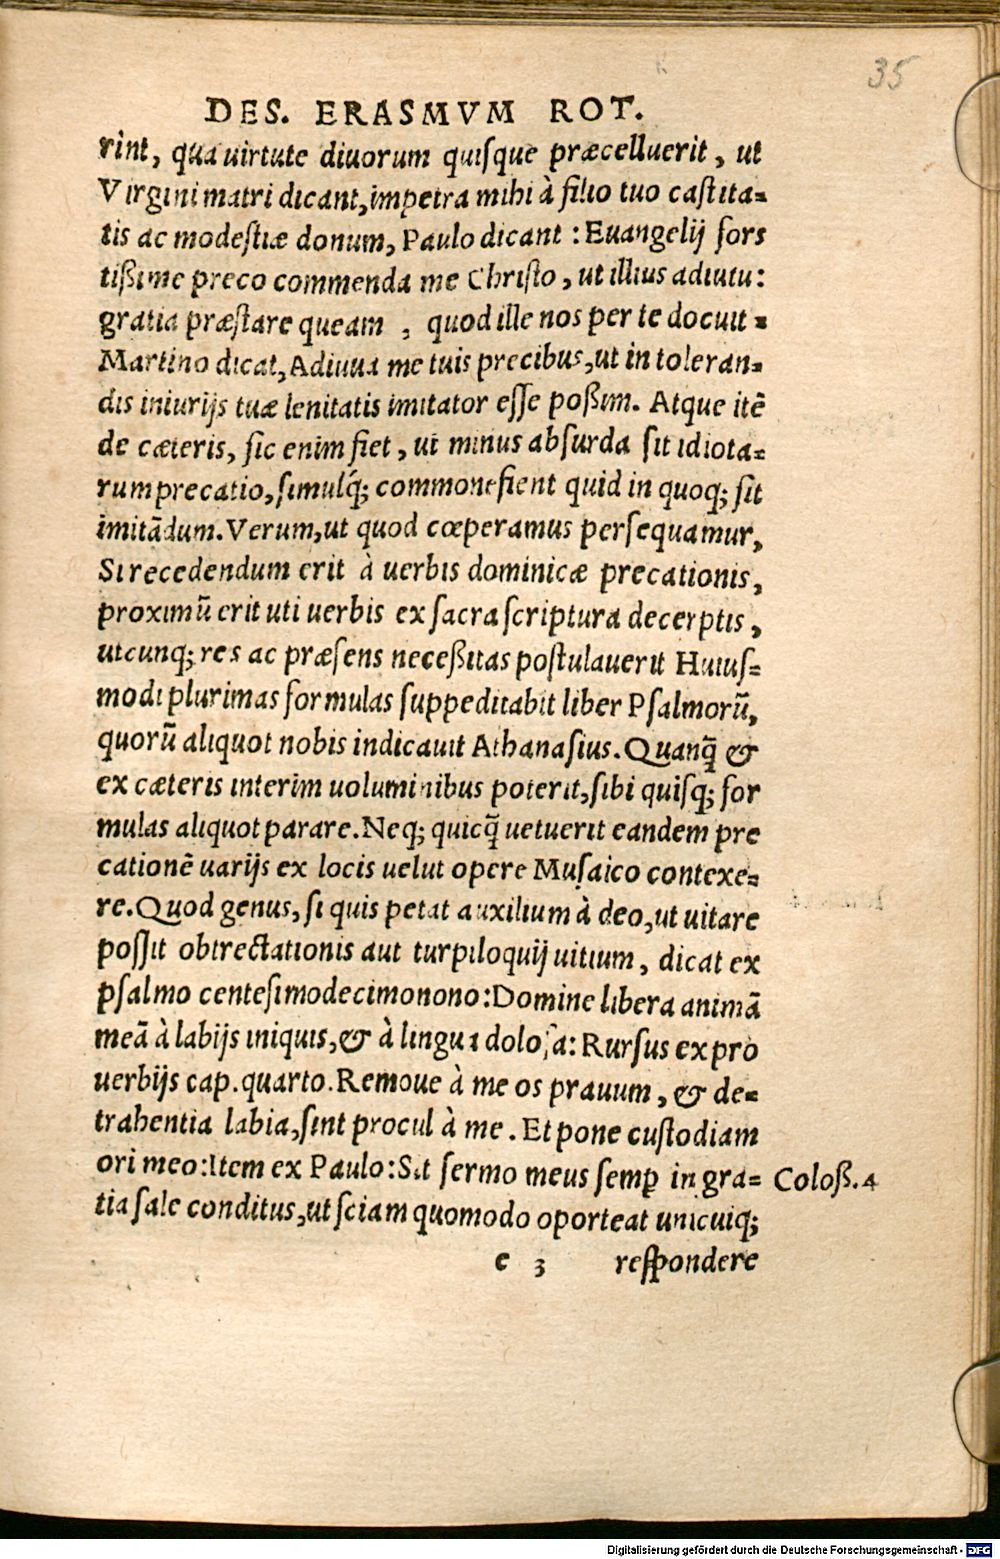 35
DES. ERASMVM ROT.
rint, qua uirtute diuorum quisque præcelluerit, ut
Virgini matri dicant, impetra mihi à filio tuo castita-
tis ac modestiæ donum, Paulo dicant : Euangelij fors
tißime preco commenda me Christo, ut illius adiutu:
gratia præstare queam , quod ille nos per te docuit .
Martino dicat, Adiuua me tuis precibus, ut in toleran-
dis iniurijs tuæ lenitatis imitator esse poßim. Atque itē
de cæteris, sic enim fiet, ut minus absurda sit idiota-
rum precatio, simulq́; commonefient quid in quoq; sit
imitādum. Verum, ut quod cœperamus persequamur,
Si recedendum erit à uerbis dominicæ precationis,
proximū erit uti uerbis ex sacra scriptura decerptis,
utcunq; res ac præsens neceßitas postulauerit Huius-
modi plurimas formulas suppeditabit liber Psalmorū,
quorū aliquot nobis indicauit Athanasius. Quanq̄ &
ex cæteris interim uoluminibus poterit, sibi quisq; for
mulas aliquot parare. Neq; quicq̄ uetuerit eandem pre
cationē uarijs ex locis uelut opere Musaico contexe-
re. Quod genus, si quis petat auxilium à deo, ut uitare
possit obtrectationis aut turpiloquij uitium, dicat ex
psalmo centesimodecimonono: Domine libera animā
meā à labijs iniquis, & à lingua dolosa: Rursus ex pro
uerbijs cap. quarto. Remoue à me os prauum, & de-
trahentia labia, sint procul à me. Et pone custodiam
ori meo: Item ex Paulo: Sit sermo meus semꝑ in gra- Coloß. 4
tia sale conditus, ut sciam quomodo oporteat unicuiq;
e 3 respondere
Digitalisierung gefördert durch die Deutsche Forschungsgemeinschaft - DFG